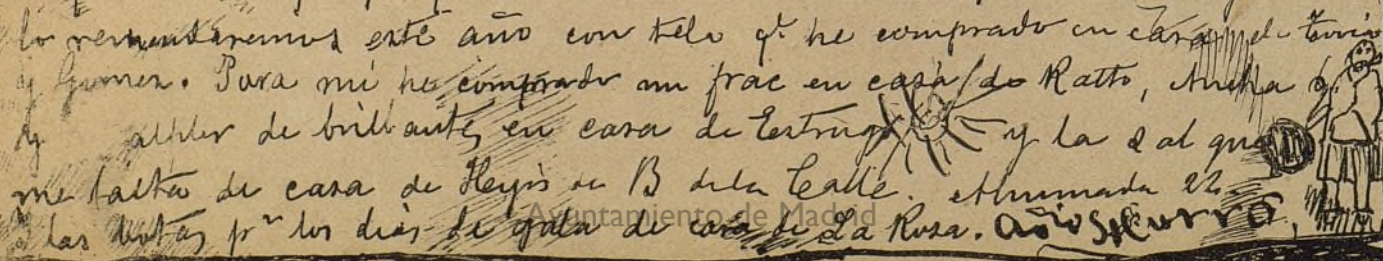 lo remendaremos este año con tela qe. he comprado en casa de
y Gomez. Para mí he comprado un frac en casa de Ratto, Ancha 6.
y alfiler de brillantes en casa de Estrugo y la sal que
me falta de casa de Heyis de B de la Calle. Ahumada 22
y las botas pa los dias de gala de casa de La Rosa. Adios Curro
Ayuntamiento de Madrid